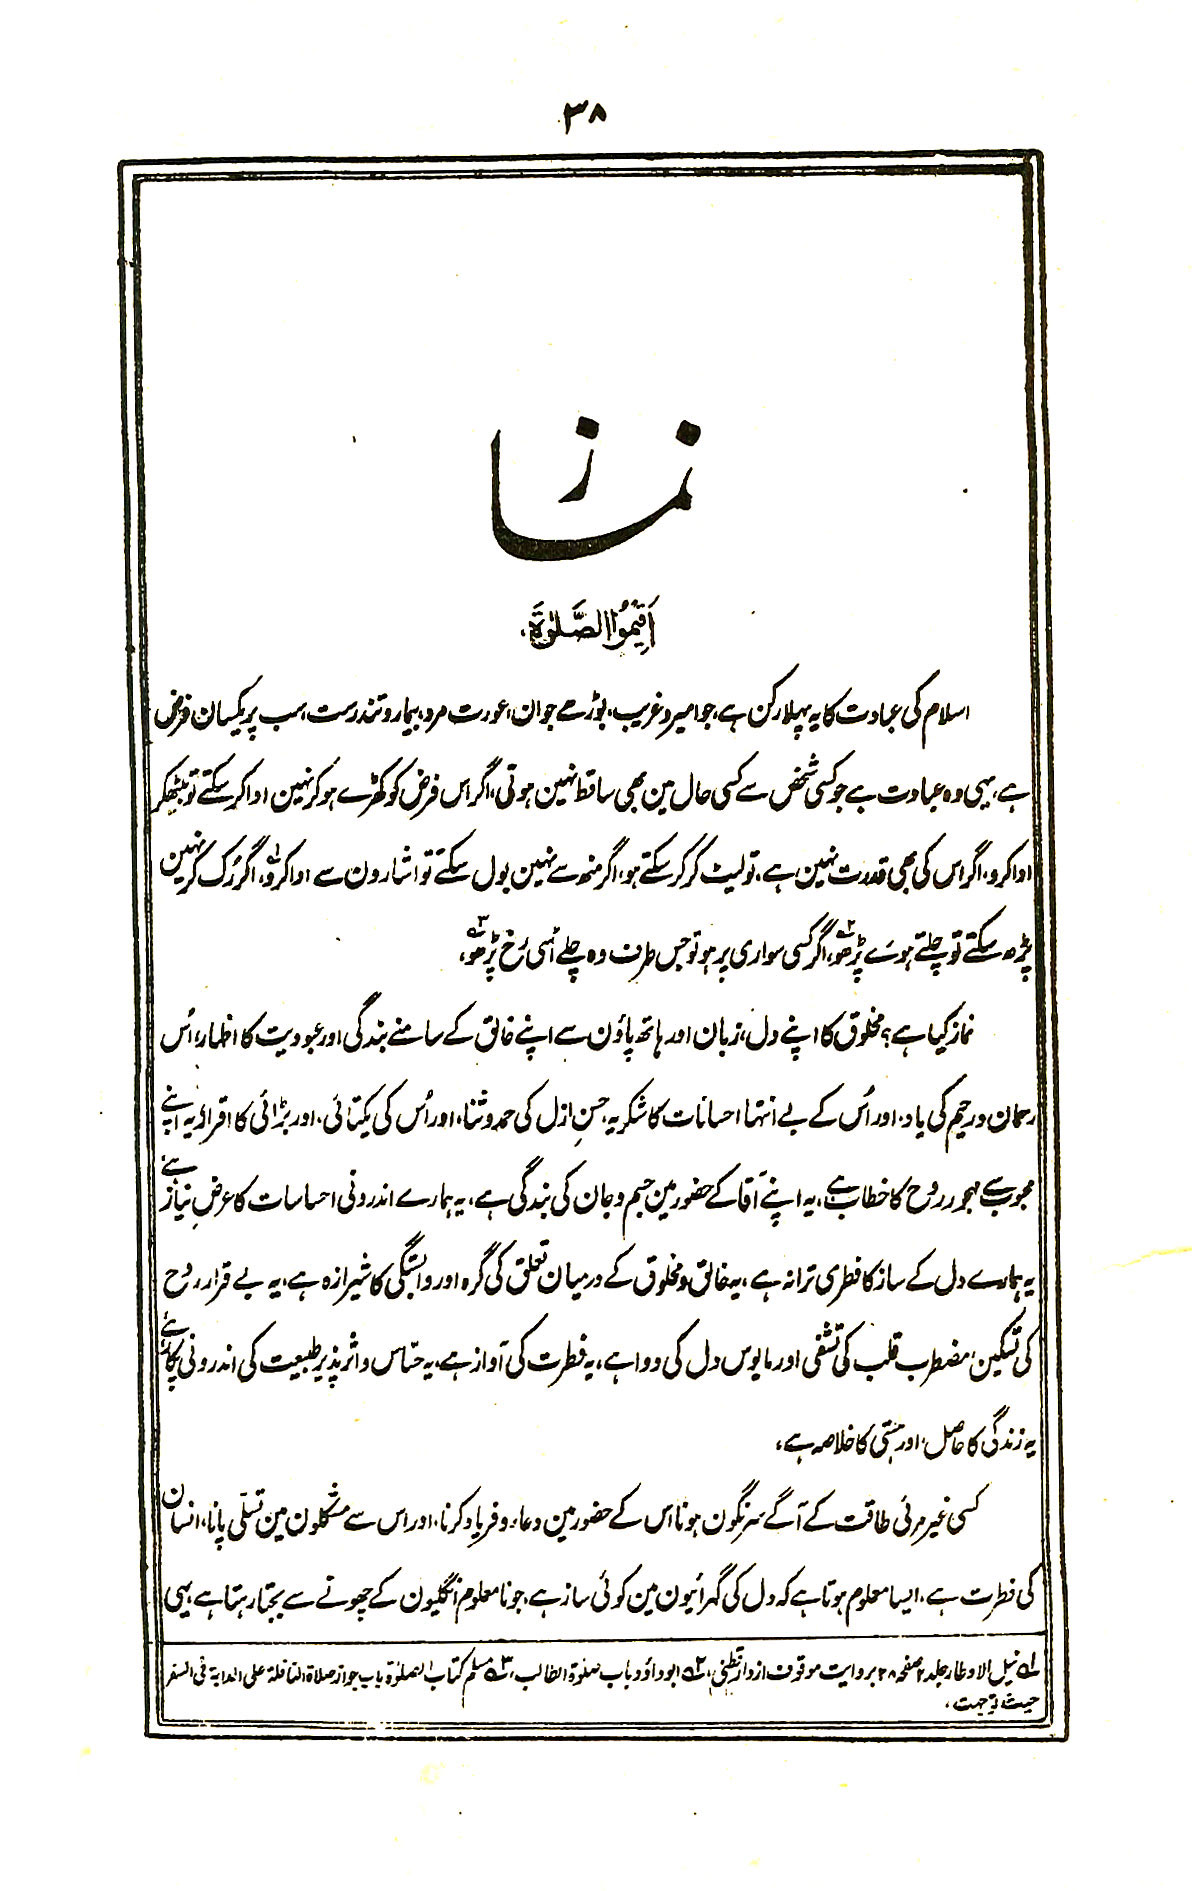 ۳۸
نماز
اَقِیْمُوا الصَّلٰوۃَ،
اسلام کی عبادت کا یہ پہلا رکن ہے، جو امیر و غریب، بوڑھے جوان، عورت مرد، بیمار و تندرست، سب پر یکسان فرض
ہے، یہی وہ عبادت ہے جو کسی شخص سے کسی حال مین بھی ساقط نہین ہوتی، اگر اس فرض کو کھڑے ہو کر نہین ادا کر سکتے تو بیٹھکر
ادا کرو، اگر اس کی بھی قدرت نہین ہے، تو لیٹ کر کر سکتے ہو، اگر منھ سے نہین بول سکتے تو اشارون سے ادا کرو،۱ اگر رُک کر نہین
پڑھ سکتے تو چلتے ہوے پڑھو،۲ اگر کسی سواری پر ہو تو جس طرف وہ چلے اُسی رُخ پڑھو،۳
نماز کیا ہے؟ مخلوق کا اپنے دل، زبان اور ہاتھ پاؤن سے اپنے خالق کے سامنے بندگی اور عبودیت کا اظہار، اُس
رحمان و رحیم کی یاد، اور اُس کے بے انتہا احسانات کا شکریہ، حسنِ ازل کی حمد و ثنا، اور اُس کی یکتائی، اور بڑائی کا اقرار، یہ اپنے
محبوب سے مہجور روح کا خطاب ہے، یہ اپنے آقا کے حضور مین جسم و جان کی بندگی ہے، یہ ہمارے اندرونی احساسات کا عرضِ نیاز ہے،
یہ ہمارے دل کے ساز کا فطری ترانہ ہے، یہ خالق و مخلوق کے درمیان تعلق کی گرہ اور وابستگی کا شیرازہ ہے، یہ بے قرار روح
کی تسکین، مضطرب قلب کی تشفی اور مایوس دل کی دوا ہے، یہ فطرت کی آواز ہے، یہ حسّاس و اثر پذیر طبیعت کی اندرونی پکار ہے،
یہ زندگی کا حاصل، اور ہستی کا خلاصہ ہے،
کسی غیر مرئی طاقت کے آگے سرنگون ہونا، اس کے حضور مین دعاء و فریاد کرنا، اور اس سے مشکلون مین تسلّی پانا، انسان
کی فطرت ہے، ایسا معلوم ہوتا ہے کہ دل کی گہرائیون مین کوئی ساز ہے، جو نامعلوم انگلیون کے چھونے سے بجتا رہتا ہے، یہی
۱؎ نیل الاوطار جلد ۲ صفحہ ۲۸ بروایت موقوف از دارقطنی، ۲؎ ابوداؤد باب صلوۃ الطالب، ۳؎ مسلم کتاب الصلوٰۃ باب جواز صلاۃ النافلۃ علی الدابۃ فی السفر
حیث توجہت،